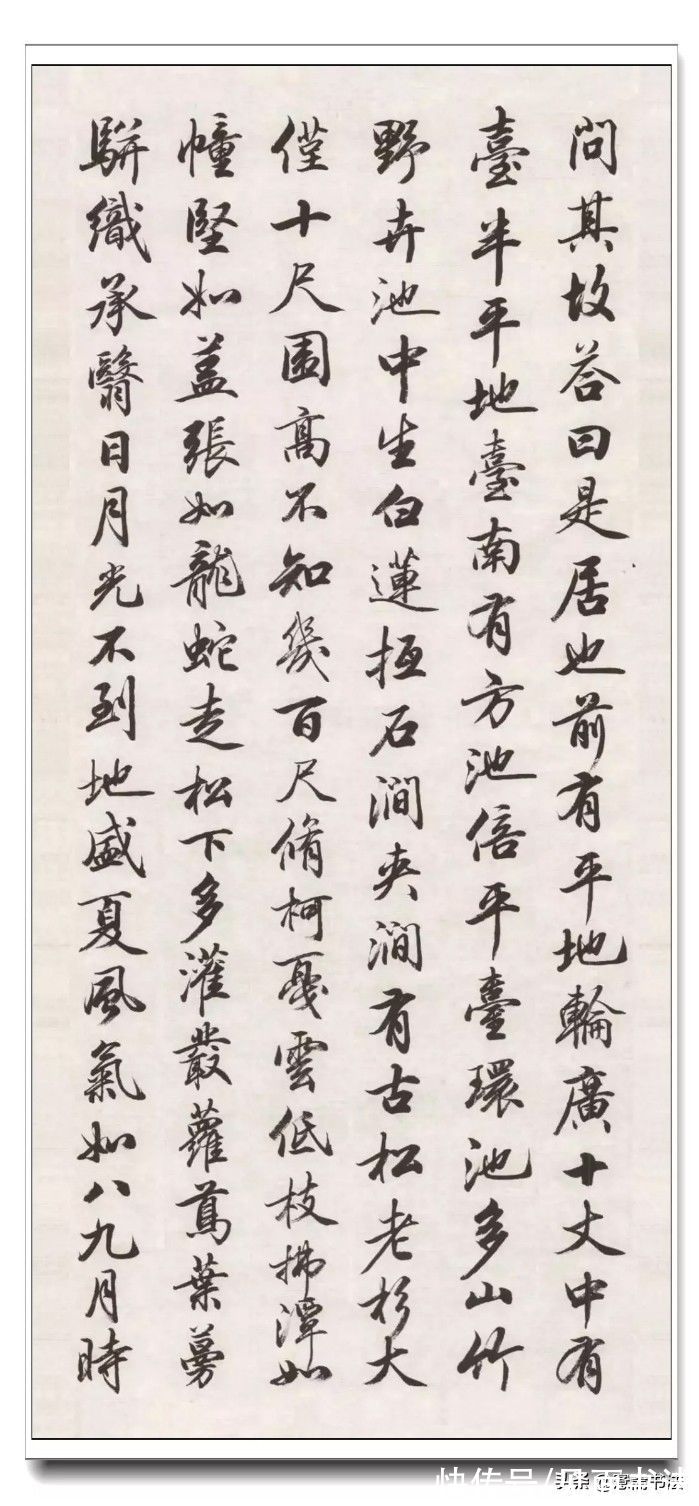 問其故答曰是居也前有平地輪廣十丈中有
臺半平地臺南有方池倍平臺環池多山竹
野卉池中生白蓮挋石澗夾澗有古松老杉大
僅十尺圍高不知幾百尺脩柯戛雲低枝拂潭如
幢堅如盖張如龍蛇走松下多灌叢蘿蔦葉蔓
駢織承翳日月光不到地盛夏風氣如八九月時
头条
书法